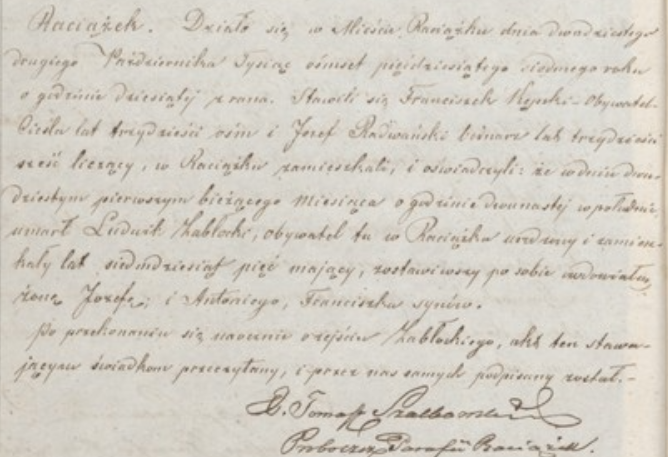 Raciążek. Działo się w Mieście Raciążku dnia dwudziestego
drugiego Października Tysiąc ośmset pięćdziesiątego siódmego roku
o godzinie dziesiątej z rana. Stawili się Franciszek Kępski Obywatel-
Cieśla lat trzydzieści ośm i Józef Radwański bednarz lat trzydzieści
sześć liczący, w Raciążku zamieszkali, i oświadczyli: że w dniu dwu-
dziestym pierwszym bieżącego miesiąca o godzinie dwunastej w południe,
umarł Ludwik Zabłocki, obywatel tu w Raciążku urodzony i zamiesz-
kały lat siedmdziesiąt pięć mający, zostawiwszy po sobie owdowiałą
żonę Józefę; i Antoniego, Franciszka synów.
Po przekonaniu się naocznie o zejściu Zabłockiego, akt ten stawa-
jącym świadkom przeczytany, i przez nas samych podpisany został.-
X. Tomasz
Proboszcz Parafii Raciążek.